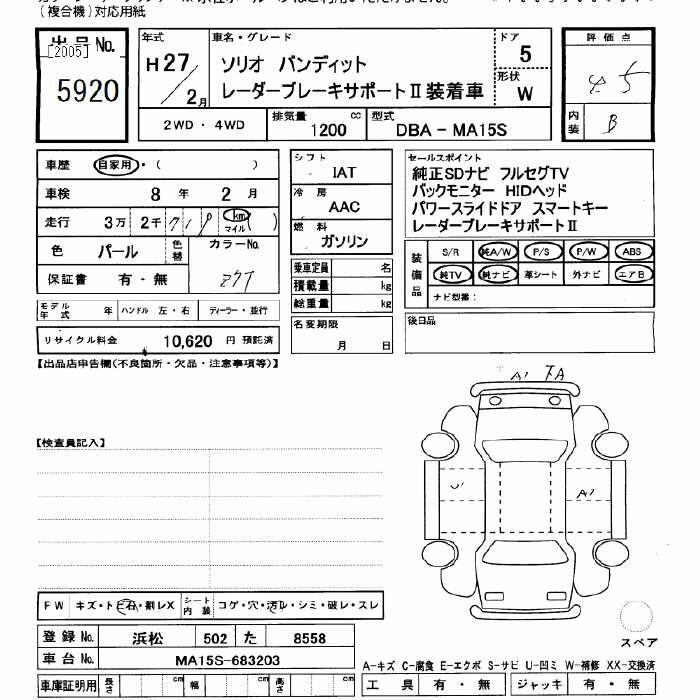 (複合機)対応用紙
出品No.
[2005]
5920
年式
H27/2月
車名・グレード
ソリオ バンディット
レーダーブレーキサポートⅡ装着車
ドア
5
形状
W
評価点
4.5
内装
B
2WD・4WD
排気量
1200 cc
型式
DBA-MA15S
車歴 自家用・( )
車検 8年 2月
走行 3万 2千 km マイル ( )
色 パール
色替
カラーNo.
Z7T
保証書 有・無
シフト
IAT
冷房
AAC
燃料
ガソリン
乗車定員 名
積載量 kg
総重量 kg
名変期限
月 日
セールスポイント
純正SDナビ フルセグTV
バックモニター HIDヘッド
パワースライドドア スマートキー
レーダーブレーキサポートⅡ
装備品
S/R 純A/W P/S P/W ABS
純TV 純ナビ 革シート 外ナビ エアB
ナビ型番:
後日品
モデル年式 年 ハンドル 左・右 ディーラー・並行
リサイクル料金 10,620 円 預託済
【出品店申告欄(不良箇所・欠品・注意事項等)】
A1
【検査員記入】
U1
FW キズ・トビ石・割レX
シート内装 コゲ・穴・汚レ・シミ・破レ・スレ
登録No. 浜松 502 た 8558
車台No. MA15S-683203
車庫証明用 長さ cm 幅 cm 高さ cm
スペア
A-キズ C-腐食 E-エクボ S-サビ U-凹ミ W-補修 XX-交換済
工具 有・無 ジャッキ 有・無